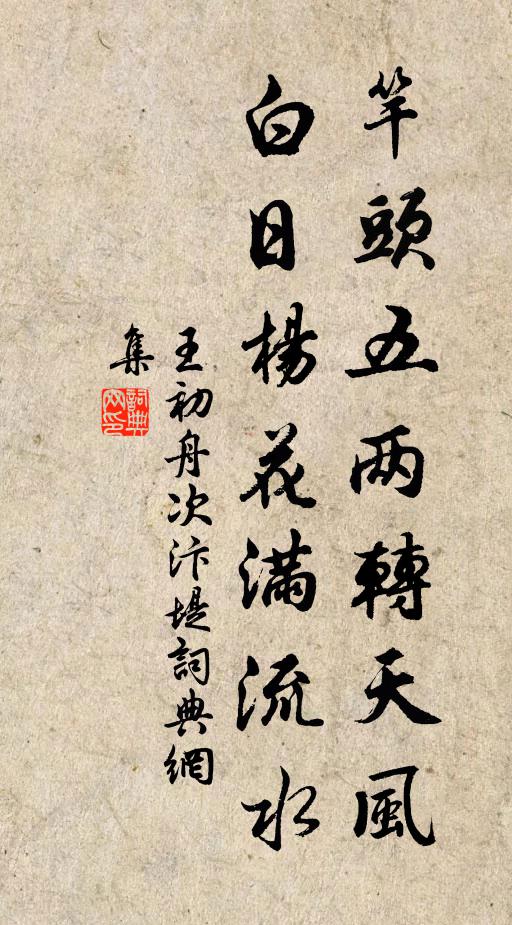 竿頭五两轉天風
白日楊花滿流水
王初舟次汴堤詞典網
集
詞典
网印